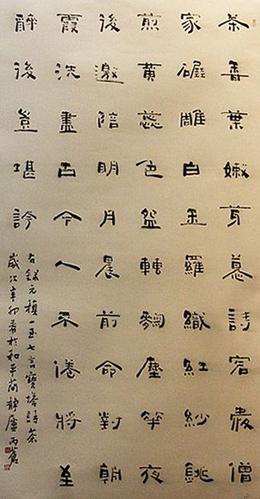 茶香葉嫩芽慕詩客愛僧
家碾雕白玉羅織紅紗銚
煎黃蕊色盌轉麴塵華夜
後邀陪明月晨前命對朝
霞洗盡古今人不倦將至
醉後豈堪誇
右錄元稹一至七言寶塔詩茶
歲次辛卯春於和平蘭靜廬丙